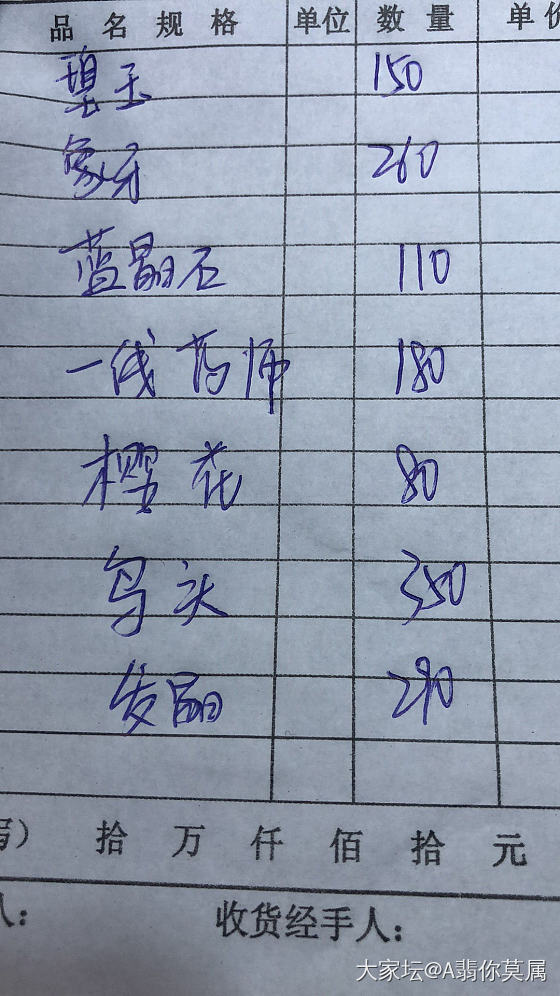 品名规格 单位 数量 单价
碧玉 150
象牙 260
蓝晶石 110
一线药师 180
樱花 80
鸟头 350
发晶 290
写） 拾 万 仟 佰 拾 元
人：
收货经手人：
大家坛@A翡你莫属